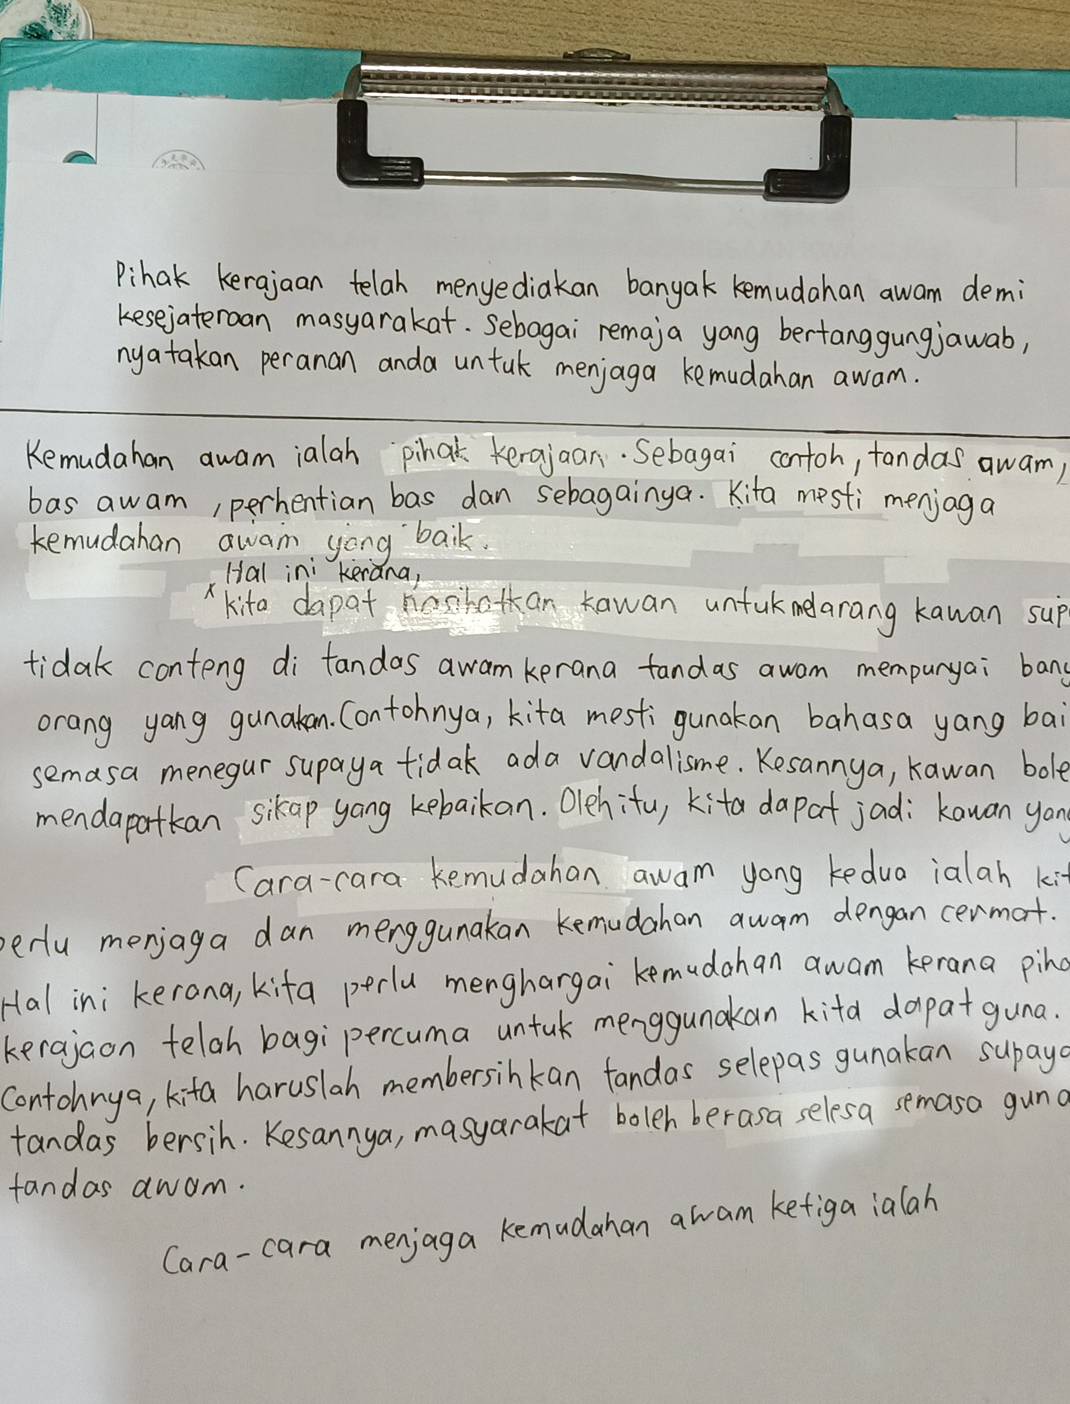 Pihak kerajaan telah menyediakan banyak kemudahan awam demi
kesejateraan masyarakat. Sebagai remaja yang bertanggungjawab,
nyatakan peranan anda untuk menjaga kemudahan awam.
Kemudahan awam ialah pihak kerajaan. Sebagai contoh, tandas awam,
bas awam, perhentian bas dan sebagainya. Kita mesti menjaga
kemudahan awam yang baik.
Hal ini kerana,
x kita dapat nasihatkan kawan untuk melarang kawan sup
tidak conteng di tandas awam kerana tandas awam mempunyai bany
orang yang gunakan. Contohnya, kita mesti gunakan bahasa yang bai
semasa menegur supaya tidak ada vandalisme. Kesannya, kawan bole
mendapatkan sikap yang kebaikan. Oleh itu, kita dapat jadi kawan yan
Cara-cara kemudahan awam yang kedua ialah kit
perlu menjaga dan menggunakan kemudahan awam dengan cermat.
Hal ini kerana, kita perlu menghargai kemudahan awam kerana piha
kerajaan telah bagi percuma untuk menggunakan kita dapat guna.
Contohnya, kita haruslah membersihkan tandas selepas gunakan supaya
tandas bersih. Kesannya, masyarakat boleh berasa selesa semasa guna
tandas awam.
Cara-cara menjaga kemudahan awam ketiga ialah